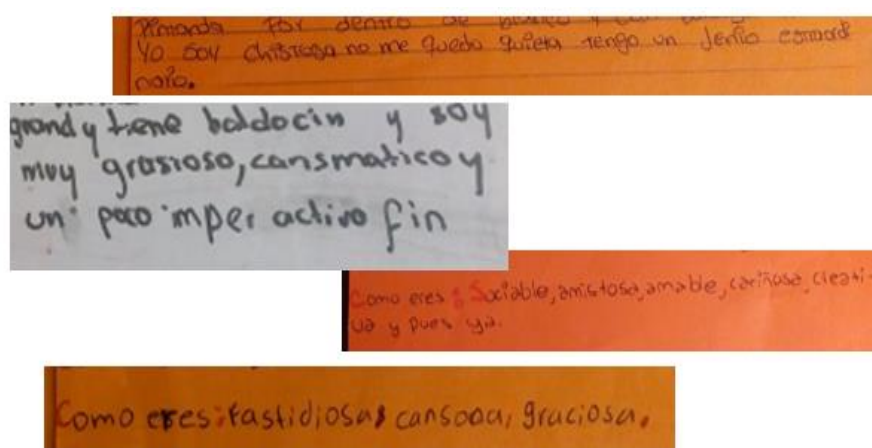 por dentro de blanco y con
Yo soy chistosa no me quedo quieta tengo un jenio esmaordi
nario.
grand y tiene baldocin y soy
muy grasioso, carismatico y
un poco imper activo fin
Como eres: Sociable, amistosa, amable, cariñosa, creati-
va y pues ya.
Como eres: fastidiosa, cansona, graciosa.